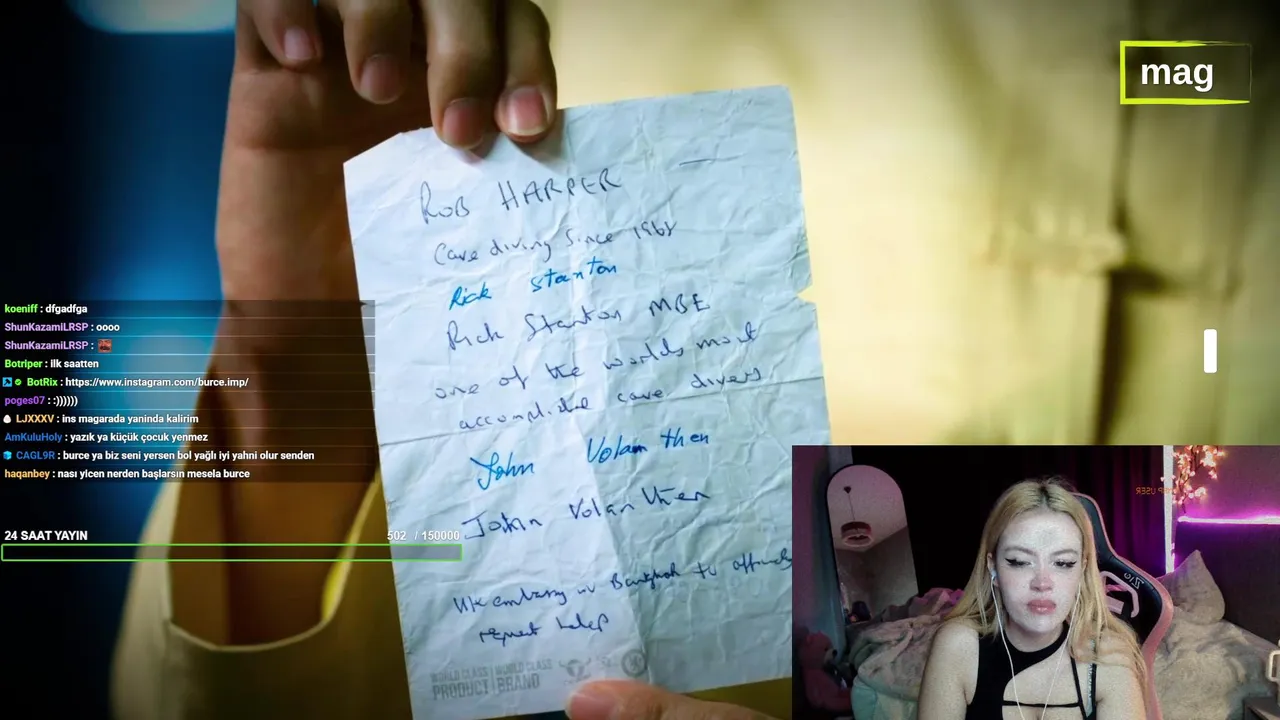 mag
ROB HARPER
Cave diving since 1968
Rick Stanton
Rick Stanton MBE
one of the worlds most
accomplished cave divers
John Volanthen
John Volanthen
UK embassy in Bangkok to
request help
WORLD CLASS | WORLD CLASS
PRODUCT | BRAND
koeniff : dfgadfga
ShunKazamiLRSP : oooo
ShunKazamiLRSP :
Botriper : ilk saatten
BotRix : https://www.instagram.com/burce.imp/
poges07 : :))))))
LJXXXV : ins magarada yaninda kalirim
AmKuluHoly : yazık ya küçük çocuk yenmez
CAGL9R : burce ya biz seni yersen bol yağlı iyi yahni olur senden
haqanbey : nası yicen nerden başlarsın mesela burce
24 SAAT YAYIN 502 / 150000